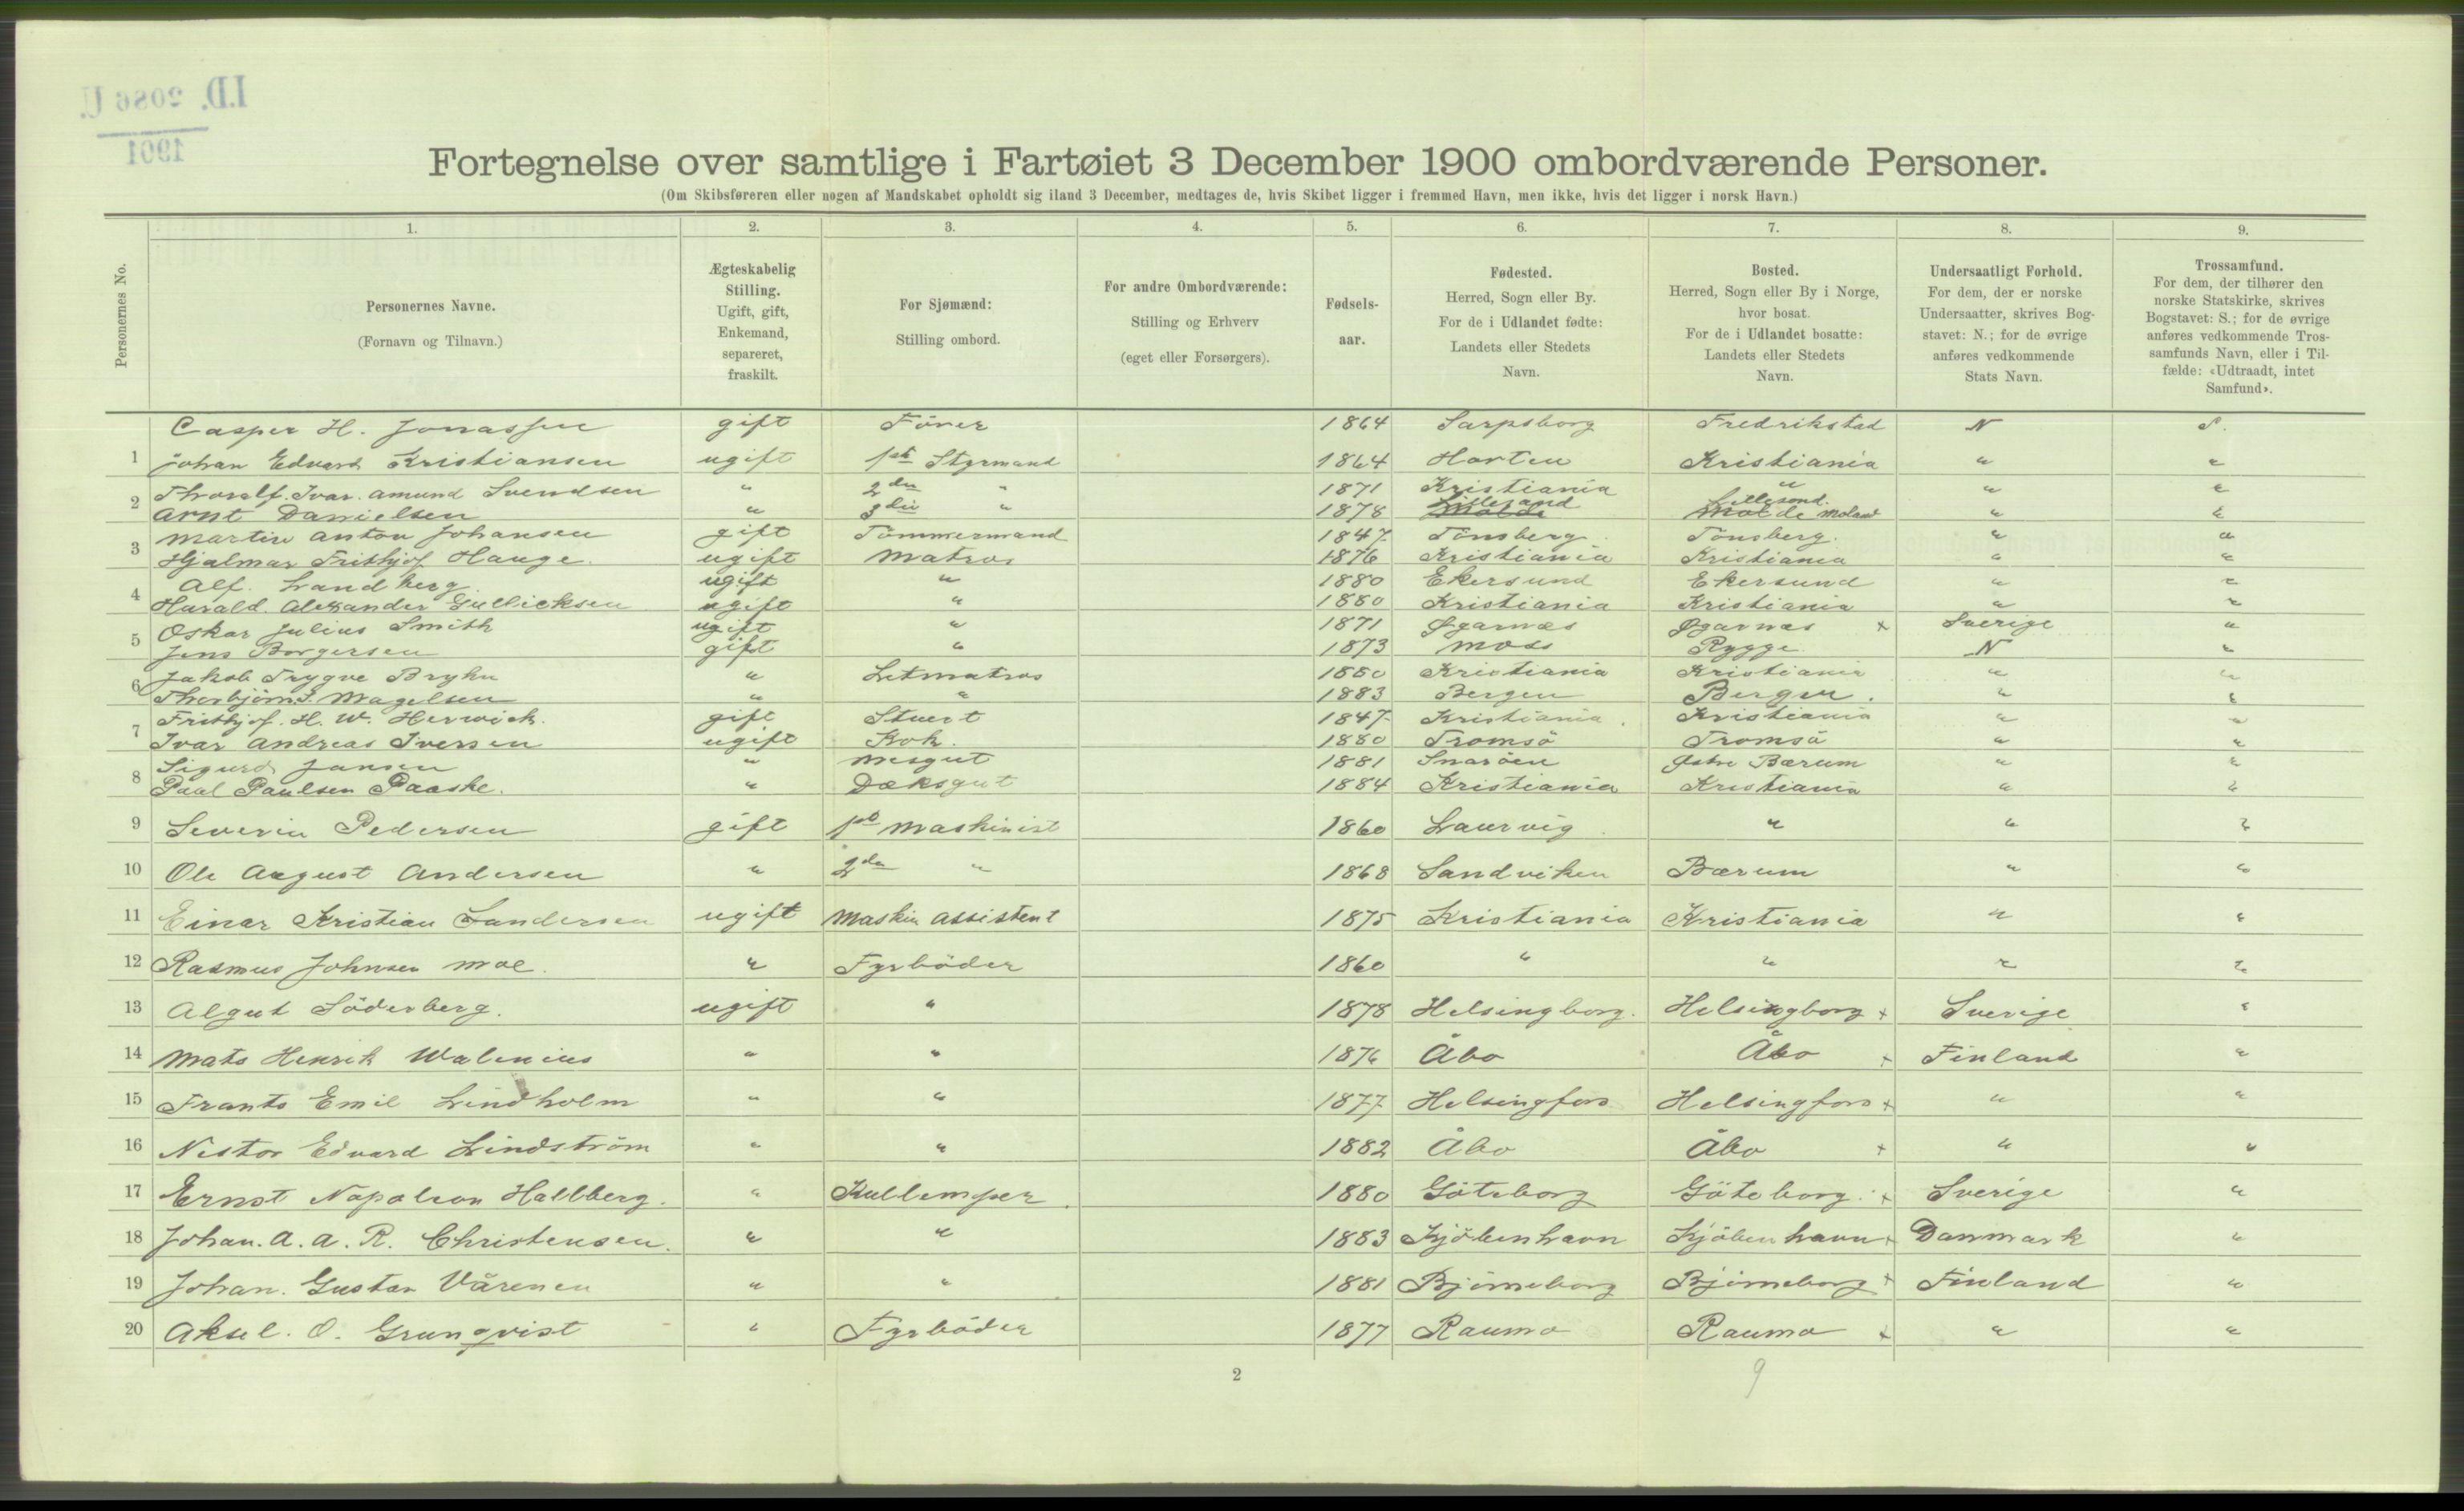 I.D. 2086 U.
1901
Fortegnelse over samtlige i Fartøiet 3 December 1900 ombordværende Personer.
(Om Skibsføreren eller nogen af Mandskabet opholdt sig iland 3 December, medtages de, hvis Skibet ligger i fremmed Havn, men ikke, hvis det ligger i norsk Havn.)
1. 2. 3. 4. 5. 6. 7. 8. 9.
Personernes No.
Personernes Navne.
(Fornavn og Tilnavn.)
Ægteskabelig
Stilling.
Ugift, gift,
Enkemand,
separeret,
fraskilt.
For Sjømænd:
Stilling ombord.
For andre Ombordværende:
Stilling og Erhverv
(eget eller Forsørgers).
Fødsels-
aar.
Fødested.
Herred, Sogn eller By.
For de i Udlandet fødte:
Landets eller Stedets
Navn.
Bosted.
Herred, Sogn eller By i Norge,
hvor bosat.
For de i Udlandet bosatte:
Landets eller Stedets
Navn.
Undersaatligt Forhold.
For dem, der er norske
Undersaatter, skrives Bog-
stavet: N.; for de øvrige
anføres vedkommende
Stats Navn.
Trossamfund.
For dem, der tilhører den
norske Statskirke, skrives
Bogstavet: S.; for de øvrige
anføres vedkommende Tros-
samfunds Navn, eller i Til-
fælde: «Udtraadt, intet
Samfund».
Casper H. Jonassen gift Förer 1864 Sarpsborg Fredrikstad N S.
1 Johan Edvard Kristiansen ugift 1st Styrmand 1864 Horten Kristiania " "
2 Thoralf. Ivar. Amund Svendsen " 2den " 1871 Kristiania " " "
Arnt Danielsen " 3die " 1878 Molde Lillesand Molde Lillesand. Moland " "
3 Martin Anton Johansen gift Tömmermand 1847 Tönsberg. Tönsberg. " "
Hjalmar Frithjof Hauge. ugift Matros 1876 Kristiania Kristiania " "
4 Alf. Landberg ugift " 1880 Ekersund Ekersund " "
Harald. Alexander Gullicksen ugift " 1880 Kristiania Kristiania " "
5 Oskar Julius Smith ugift " 1871 × Sverige "
Jens Borgersen gift " 1873 Moss Rygge N "
6 Jakob Trygve Bryhn " Letmatros 1880 Kristiania Kristiania " "
Thorbjörn J. Magelsen " " 1883 Bergen Bergen. " "
7 Frithjof. H. W. Herwick. gift Stuert 1847 Kristiania. Kristiania " "
Ivar Andreas Iversen ugift Kok. 1880 Tromsö Tromsö " "
8 Sigurd Jansen " Mesgut 1881 Snaröen Östre Bærum " "
Paul Paulsen Paaske. " Dæksgut 1884 Kristiania Kristiania " "
9 Severin Pedersen gift 1st Maskinist 1860 Laurvig. " " "
10 Ole August Andersen " 2den " 1868 Sandviken Bærum " "
11 Einar Kristian Sandersen ugift Maskin Assistent 1875 Kristiania Kristiania " "
12 Rasmus Johnsen Moe. " Fyrböder 1860 " " " "
13 Algut Söderberg. ugift " 1878 Helsingborg. Helsingborg × Sverige "
14 Mats Henrik Walenius " " 1876 Åbo Åbo × Finland "
15 Frants Emil Lindholm " " 1877 Helsingfors Helsingfors × " "
16 Nestor Edvard Lindström " " 1882 Åbo Åbo × " "
17 Ernst Napoleon Hallberg. " Kullemper. 1880 Göteborg Göteborg. × Sverige "
18 Johan. A. A. R. Christensen. " " 1883 Kjöbenhavn Kjöbenhavn × Danmark "
19 Johan. Gustav Vårenen " " 1881 Björneborg Björneborg × Finland "
20 Aksel. O. Grunqvist " Fyrböder 1877 Raumo Raumo × " "
2
9